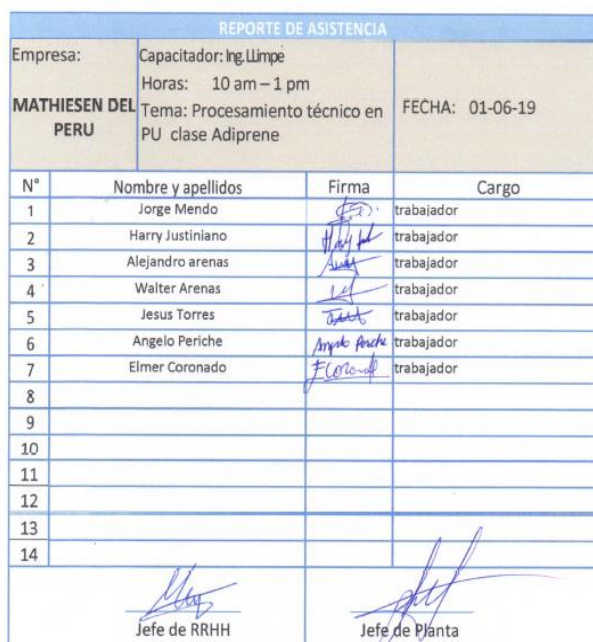 REPORTE DE ASISTENCIA
Empresa:
MATHIESEN DEL
PERU
Capacitador: Ing.LLimpe
Horas: 10 am – 1 pm
Tema: Procesamiento técnico en
PU clase Adiprene
FECHA: 01-06-19
N° Nombre y apellidos Firma Cargo
1 Jorge Mendo trabajador
2 Harry Justiniano trabajador
3 Alejandro arenas trabajador
4 Walter Arenas trabajador
5 Jesus Torres trabajador
6 Angelo Periche Angelo Periche trabajador
7 Elmer Coronado trabajador
8
9
10
11
12
13
14
Jefe de RRHH Jefe de Planta